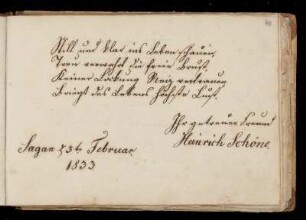 Still und klar ins Leben schauen,
Treu verwahrt die freie Brust,
Keiner Lockung Reiz vertrauen
Bringt des Lebens höchste Lust.
Ihr getreuer Freund
Heinrich Schöne.
Sagan d 5t Februar
1833